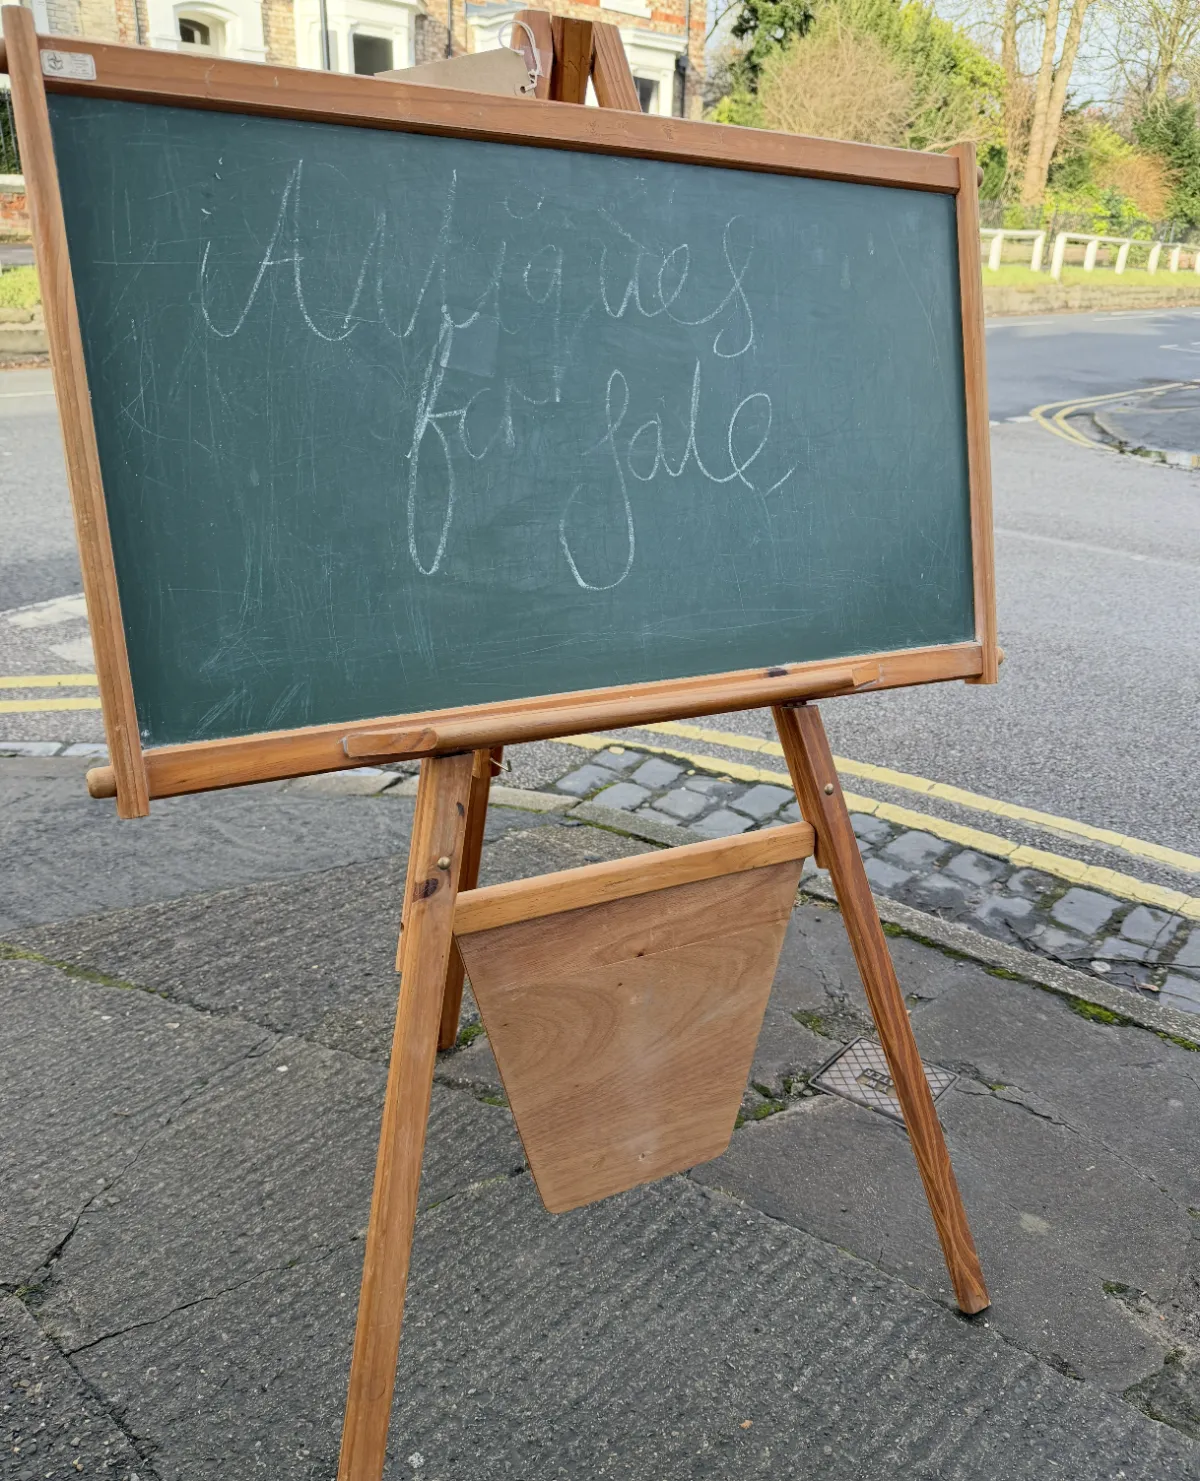 Antiques
for sale